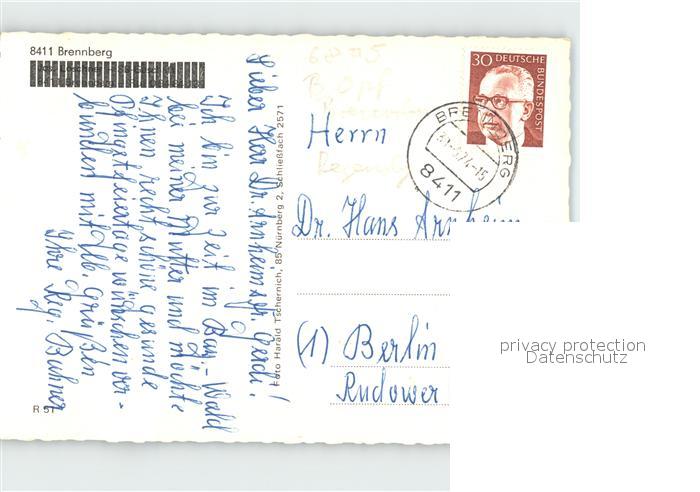 8411 Brennberg
Lieber Herr Dr. Arnheim, sgr. Gerdi!
Ich bin zur Zeit im Bay.-Wald
bei meiner Mutter und möchte
Ihnen recht schöne gesunde
Pfingstfeiertage wünschen ver-
bunden mit lb. Grüßen
Ihre Reg. Buhner
R 51
Foto Harald Tschernich, 85 Nürnberg 2, Schließfach 2571
30 DEUTSCHE
BUNDESPOST
BRENNBERG
8411
Herrn
Dr. Hans Arnheim
(1) Berlin
Rudower
privacy protection
Datenschutz